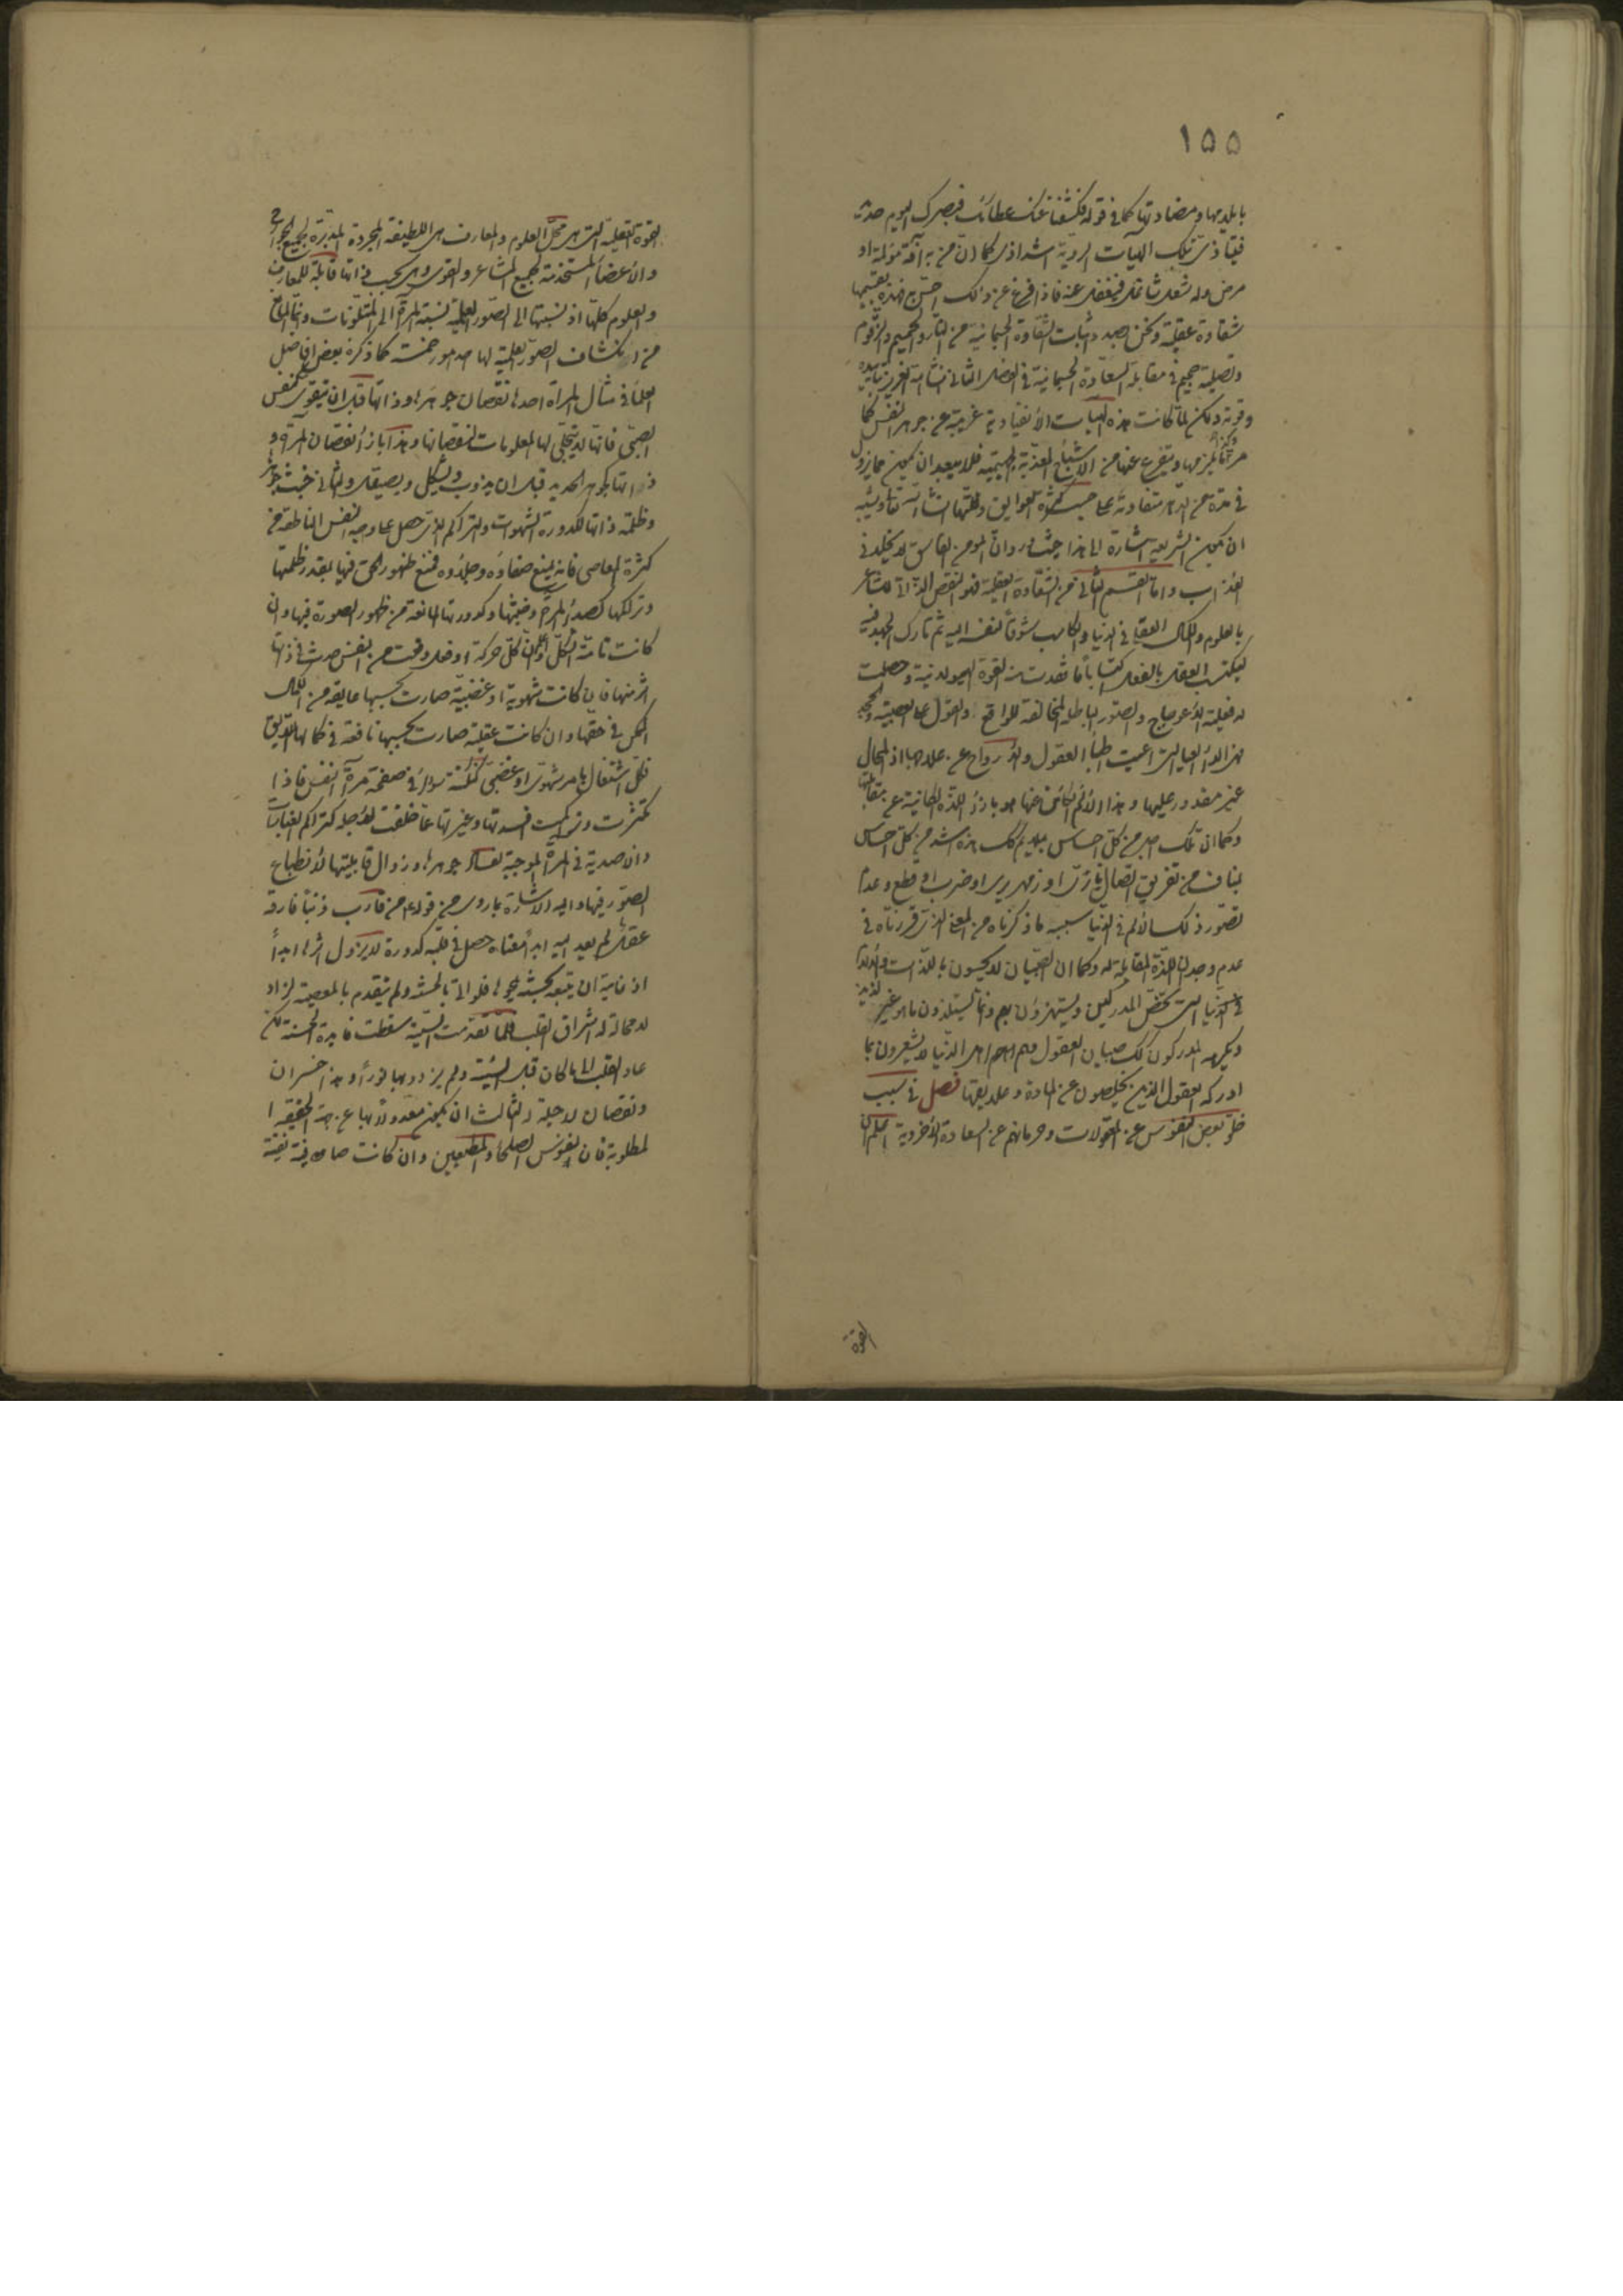 ١٥٥
فكشفنا عنك غطاءك فبصرك اليوم حديد
فيتأذى بتلك الهيآت الردية اشد اذى كما ان من به آفة مؤلمة او
مرض وله شغل شاغل فيغفل عنه فاذا فرغ عن ذلك احس به فهذه
شقاوة عقلية ونحن بصدد اثبات الشقاوة الجسمانية من النار والحميم والزقوم
وتصلية جحيم في مقابلة السعادة الجسمانية في الفصل الثاني
وقوته ولكن لما كانت هذه الهيآت الانقيادية غريبة عن جوهر النفس كما
ما يلزمها ويتفرع عنها من الاشباح فلا يبعد ان يكون مما يزول
في مدة من الدهر متفاوتة على حسب كثرة العوايق وقلتها ان شاء الله تعالى ويشبه
ان يكون الشريعة اشارة الى هذا حيث ورد ان المومن الفاسق لا يخلد في
العذاب واما القسم الثاني من الشقاوة العقلية فهو النقص الذاتي للشاعر
بالعلوم والكمال العقلي في الدنيا والكاسب شوقا لنفسه اليه ثم تارك الجهد فيه
ليكتسب العقل بالفعل اكتسابا ما فقدت منه القوة الهيولانية وحصلت
له فعلية الاعوجاج والصور الباطلة المخالفة للواقع والقول على العصبية والجحد
فهي الداء العياء التي اعيت اطباء العقول والارواح عن علاجها اذ المحال
غير مقدور عليها وهذا الالم الكائن عنها هو بازاء اللذة الكائنة عن مقابلتها
وكما ان تلك اجل من كل احساس بملايم كذلك هذه اشد من كل احساس
بمناف من تفريق اتصال بنار او زمهرير او ضرب او قطع وعدم
تصور ذلك الالم في الدنيا سببه ما ذكرناه من المعنى الذي قررناه في
عدم وجدان اللذة المقابلة له وكما ان الصبيان لا يحسون باللذات والآلام
التي تخص المدركين ويستهزؤن بهم وانما يستلذون ما هو غير لذيذ
ويكرهه المدركون كذلك صبيان العقول وهم اهل الدنيا لا يشعرون بما
ادركه العقول الذين يخلصون عن المادة وعلايقها فصل في سبب
خلو بعض النفوس عن المعقولات وحرمانهم عن السعادة الاخروية اعلم ان
القوة
القوة العقلية التي هي محل العلوم والمعارف هي اللطيفة المجردة المدبرة لجميع الجوارح
والاعضاء المستخدمة لجميع المشاعر والقوى وهي بحسب ذاتها قابلة للمعارف
والعلوم كلها اذ نسبتها الى الصور العلمية نسبة المرآة الى المتلونات وانما المانع
من انكشاف الصور العلمية لها احد امور خمسة كما ذكره بعض افاضل
العلماء في مثال المرآة احدها نقصان جوهرها وذاتها قبل ان يتقوى كنفس
الصبي فانها لا يتجلى لها المعلومات لنقصانها وهذا بازاء نقصان المرآة
ذاتها كجوهر الحديد قبل ان يذوب ويشكل ويصيقل والثاني خبث جوهرها
وظلمة ذاتها لكدورة الشهوات والتراكم الذي حصل على وجه النفس الناطقة من
كثرة المعاصي فانه يمنع صفاءه وجلاءه فمنع ظهور الحق فيها بقدر ظلمتها
وتراكمها كصدأ المرآة وخبثها وكدورتها المانعة من ظهور الصورة فيها وان
كانت تامة الشكل واعلم ان كل حركة او فعل وقعت من النفس حدث في ذاتها
اثر منها فان كانت شهوية او غضبية صارت بحسبها عايقه من الكمال
الممكن في حقها وان كانت عقلية صارت بحسبها نافعة في كمالها اللايق
فكل اشتغال بامر شهوى او غضبى كنكتة سوداء في صفحة مرآة النفس فاذا
تكثرت وتراكمت افسدتها وغيرتها عما خلقت لاجله كتراكم الغبارات
وان صدية في المرآة الموجبة لفساد جوهرها وزوال قابليتها لانطباع
الصور فيها واليه الاشارة بما روى من قوله من قارف ذنبا فارقه
عقل لم يعد اليه ابدا معناه حصل في قلبه كدورة لا يزول اثرها ابدا
اذ غايته ان يتبعه بحسنة يمحوها فلو اتى بالحسنة ولم يتقدم بالمعصية لزاد
لا محالة له اشراق القلب فلما تقدمت السيئة سقطت فايدة الحسنة لكن
عاد القلب الى ما كان قبل السيئة ولم يزدد بها نورا وهذا خسران
ونقصان لا حيلة والثالث ان يكون معدولا بها عن جهة الحقيقة
المطلوبة فان نفوس الصلحاء والمطيعين وان كانت صافية نقية